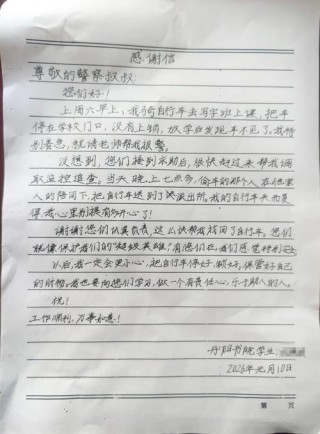 感谢信
尊敬的警察叔叔:
您们好!
上周六早上,我骑自行车去写字班上课,把车
停在学校门口,没有上锁,放学后发现车不见了。我特
别着急,就请老师帮我报警。
没想到,您们接到求助后,很快赶过来帮我调
取监控追查。当天晚上七点多,偷车的那个人在他家
人的陪同下,把自行车送到了派出所。我的自行车失而复
得,我心里别提有多开心了!
谢谢您们认真负责,这么快帮我找回了自行车。您们
就像保护我们的“超级英雄”,有您们在,我们感觉特别安全。
以后,我一定会更小心,把自行车停好、锁好,保管好自己
的财物。我也要向您们学习,做一个有责任心、乐于助人的人。
祝!
工作顺利,万事如意!
丹阳书院学生
2026年元月10日
第 页